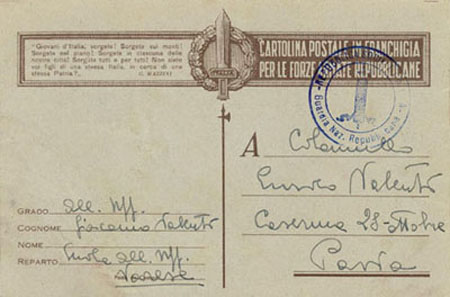 "Giovani d'Italia, sorgete! Sorgete sui monti!
Sorgete nel piano! Sorgete in ciascuna delle
nostre città! Sorgete tutti e per tutti! Non siete
voi figli di una stessa Italia, in carta di una
stessa Patria?.. G. MAZZINI
CARTOLINA POSTALE IN FRANCHIGIA
PER LE FORZE ARMATE REPUBBLICANE
Guardia Naz. Repubblicana
A Colonnello
Enrico Valenti
Caserma 28 Ottobre
Pavia
GRADO All. Uff.
COGNOME Giacomo Valenti
NOME
REPARTO Scuola All. Uff.
Varese